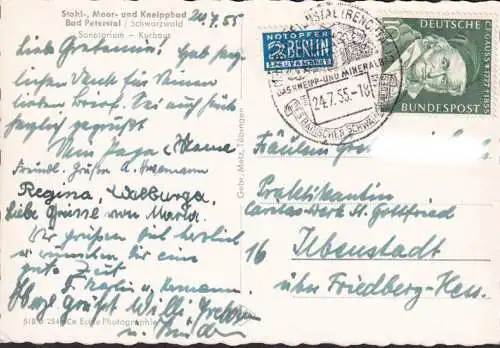 Stahl-, Moor- und Kneippbad
Bad Peterstal / Schwarzwald
Sanatorium - Kurhaus
24.7.55
Liebe Gretamimi! Hab herz-
lichen Dank für Deinen
lieben Brief. Sei auf's
herzlich gegrüßt
Papa, Mama
Freundl. Grüße A.
Regina, Walburga,
Liebe Grüsse von Maria.
Wir grüßen Dich herzlich
u. wünschen Dir eine
gute Zeit
F. Karlin u. Hermann
grüßt Willi
u.
518 B Echte Photographie
Gebr. Metz, Tübingen
NOTOPFER
2 BERLIN
STEUERMARKE
DAS KNEIPP- UND MINERALBAD
24.7.55.-18
DEUTSCHE
BUNDESPOST
10
C. F. GAUSS 1777-1855
Fräulein
Praktikantin
Caritas-Werk St. Gottfried
16 Ilbenstadt
über Friedberg-Hess.